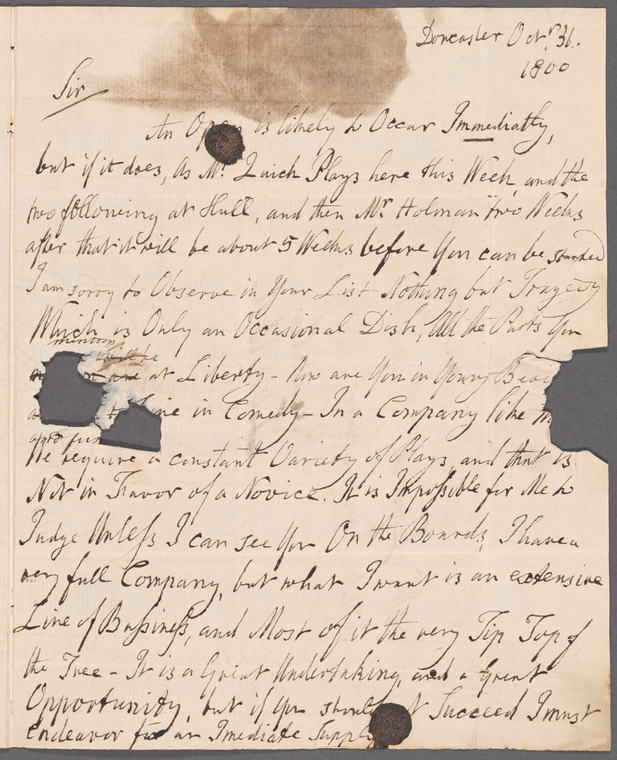 Doncaster Octr. 31.
1800
Sir
An Open is likely to Occur Immediatly,
but if it does, As Mr. Quick Plays here this Week, and the
two following at Hull, and then Mr Holman two Weeks
after that it will be about 5 Weeks before you can be started
I am sorry to Observe in your List Nothing but Tragedy
Which is Only an Occasional Dish, All the Parts you
mention
at Liberty - Now are you in
Line in Comedy - In a Company like
We require a constant Variety of Plays, and that is
Not in Favor of a Novice. It is Impossible for Me to
Judge Unless I can see you On the Boards, I have a
very full Company, but what I want is an extensive
Line of Bussiness, and Most of it the very Tip Top of
the Tree - It is a Great Undertaking, and a Great
Opportunity, but if you should t Succeed I must
Endeavor for an Imediate Supply